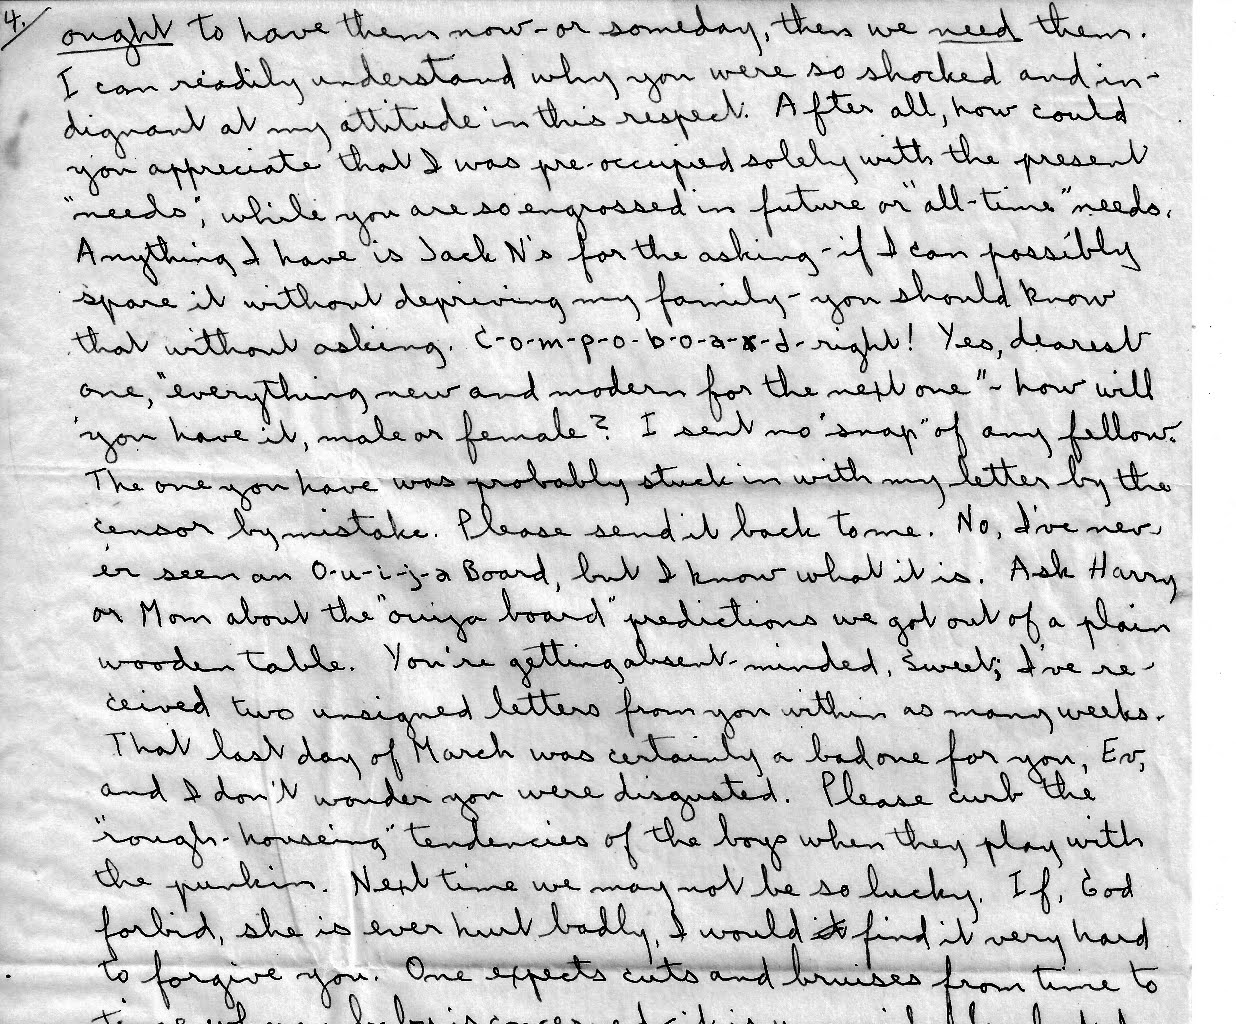 4.
ought to have them now-or someday, then we need them.
I can readily understand why you were so shocked and in-
dignant at my attitude in this respect. After all, how could
you appreciate that I was pre-occupied solely with the present
"needs", while you are so engrossed in future or "all-time" needs.
Anything I have is Jack N's for the asking-if I can possibly
spare it without depriving my family-you should know
that without asking. C-o-m-p-o-b-o-a-r-d-right! Yes, dearest
one, "everything new and modern for the next one"- how will
you have it, male or female? I sent no "snap" of any fellow.
The one you have was probably stuck in with my letter by the
censor by mistake. Please send it back to me. No, I've nev-
er seen an O-u-i-j-a Board, but I know what it is. Ask Harry
or Mom about the "ouija board" predictions we got out of a plain
wooden table. You're getting absent-minded, Sweet; I've re-
ceived two unsigned letters from you within as many weeks.
That last day of March was certainly a bad one for you, Ev,
and I don't wonder you were disgusted. Please curb the
"rough-houseing" tendencies of the boys when they play with
the punkin. Next time we may not be so lucky. If, God
forbid, she is ever hurt badly, I would find it very hard
to forgive you. One expects cuts and bruises from time to